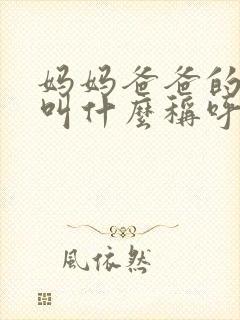 妈妈爸爸的
叫什麼稱呼
風依然